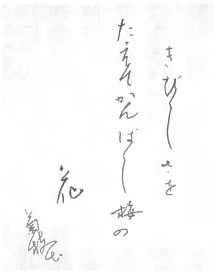 きびしさを
たえてかんばし梅の
花